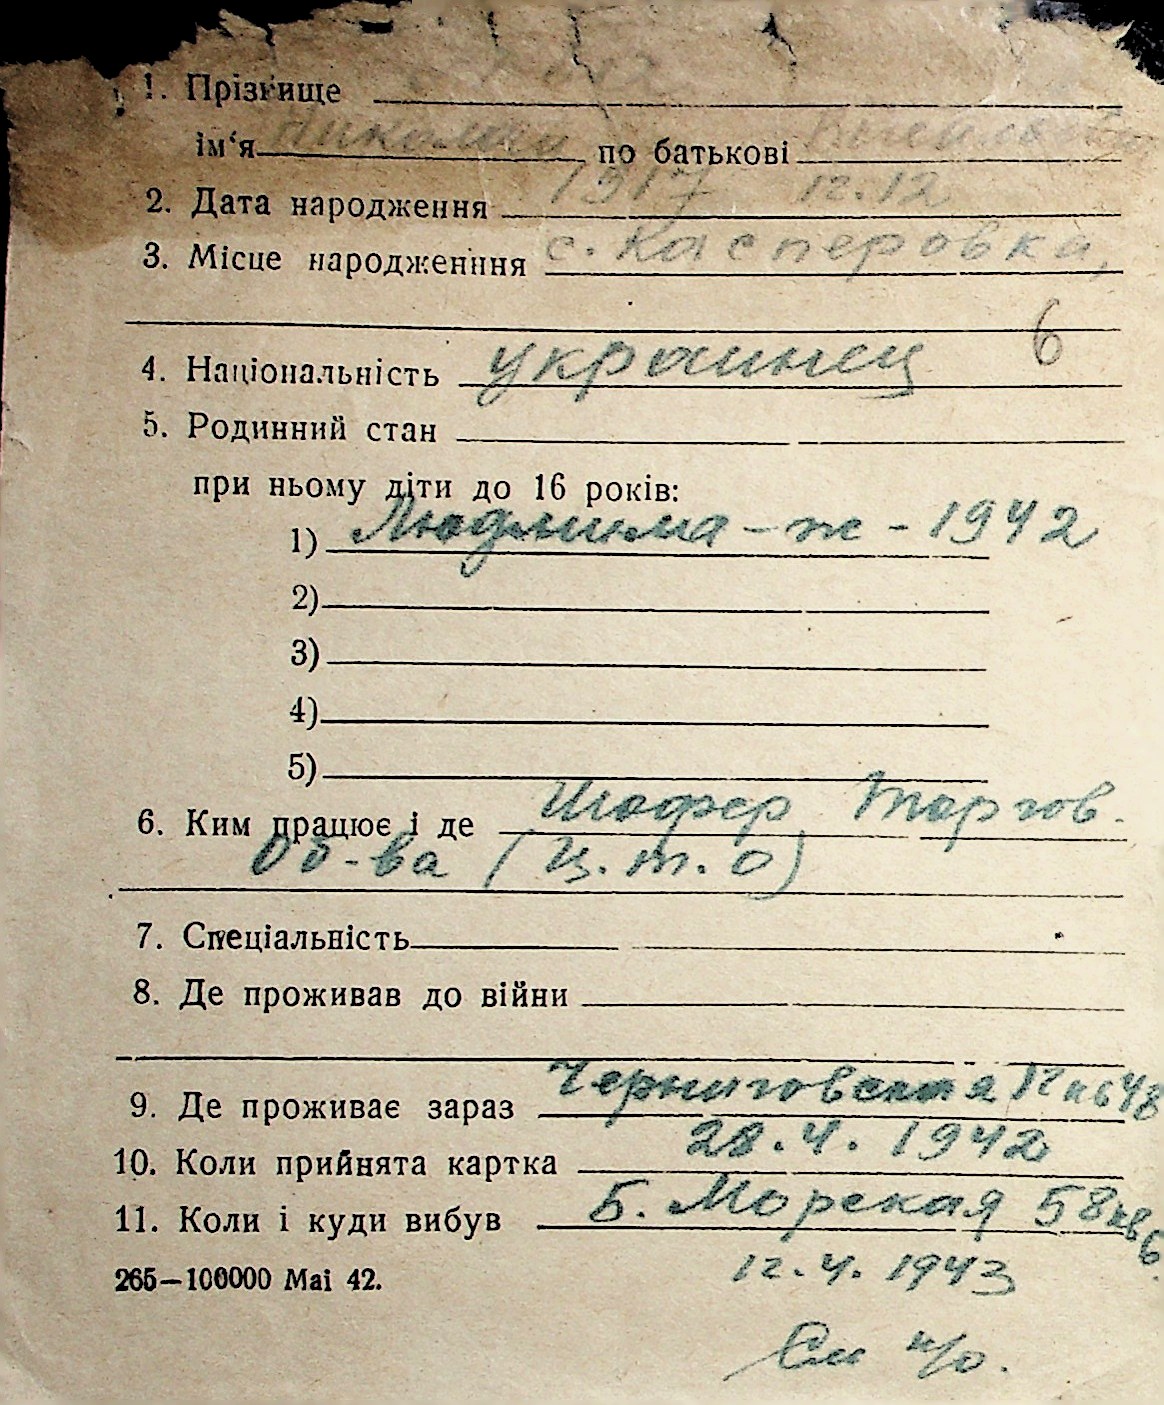 1. Прізвище
ім‘я Николай по батькові
2. Дата народження 1917 12.12
3. Місце народженння с. Касперовка,
6
4. Національність украинец
5. Родинний стан
при ньому діти до 16 років:
1) Людмима - ж - 1942
2)
3)
4)
5)
6. Ким працює і де Шофер Торгов.
Об-ва (Ц.т.о)
7. Спеціальність
8. Де проживав до війни
9. Де проживає зараз Черниговская 12 кв 48
10. Коли прийнята картка 28.4.1942
11. Коли і куди вибув Б. Морская 58 кв 6.
265—100000 Mai 42. 12.4.1943
См н/о.